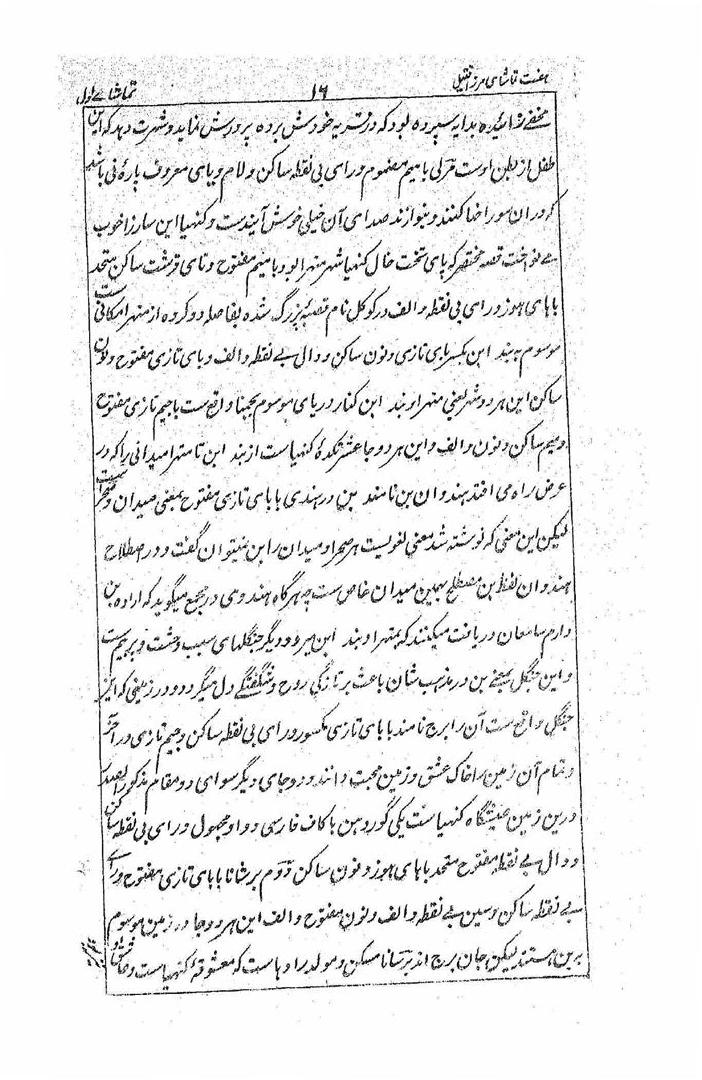 هفت تماشای مرزا قتیل ۱۶ تماشاے اول
مخفے زائیده بدایه سپرده بود که در قریه خودش برده پرورش نماید و شهرت دهد که این
طفل از بطن اوست مرلی با میم مضموم و رای بی نقطه ساکن و لام و یای معروف پارهٔ نی باشد
که در ان سوراخها کنند و بنوازند صدای آن خیلی خوش آیندست و کنهیا این ساز را خوب
مے نواخت قصه مختصر که پای تخت خال کنهیا شهر متهرا بود با میم مفتوح و تای قرشت ساکن متحد
با های هوز و رای بی نقطه و الف در گوکل نام قصبهٔ بزرگ شده بفاصله دو کروه از متهرا مکانی ست
موسوم به بند ابن بکسر بای تازی و نون ساکن و دال بے نقطه و الف و بای تازی مفتوح و نون
ساکن این هر دو شهر یعنی متهرا و بند ابن کنار دریای موسوم بجمنا واقع ست با جیم تازی مفتوح
و میم ساکن و نون و الف و این هر دو جا عشرتکدهٔ کنهیاست از بند ابن تا متهرا میدانی را که در
عرض راه می افتد هندوان بن نامند بن در هندی با بای تازی مفتوح بمعنی میدان و صحرا ست
لیکن این معنی که نوشته شد معنی لغویست هر صحرا و میدان را بن میتوان گفت و در اصطلاح
هندوان لفظ بن مصطلح بهمین میدان خاص ست چه هرگاه هندوی در مجمع میگوید که اراده بن
دارم سامعان دریافت میکنند که بمتهرا و بند ابن میرود و دیگر جنگلهای سبب وحشت و بر هم ست
و این جنگل یعنے بن در مذهب شان باعث بر تازگی روح و شگفتگے دل میگردد و در زمینی که این
جنگل واقع ست آن را برج نامند با بای تازی مکسور و رای بی نقطه ساکن و جیم تازی در آخر
و تمام آن زمین را خاک عشق و زمین محبت دانند و دو جای دیگر سوای دو مقام مذکور الصدر
درین زمین عیشگاه کنهیاست یکی گوردهن با کاف فارسی و واو مجهول و رای بی نقطه ساکن
و دال بے نقطه مفتوح متحد با های هوز و نون ساکن دوم برسانا با بای تازی مفتوح و رای
بے نقطه ساکن و سین بے نقطه و الف و نون مفتوح و الف این هر دو جا در زمین موسوم
به بن هستند لیکن جان برج اند برسانا مسکن و مولد رادهاست که معشوقهٔ کنهیاست و عاشق او